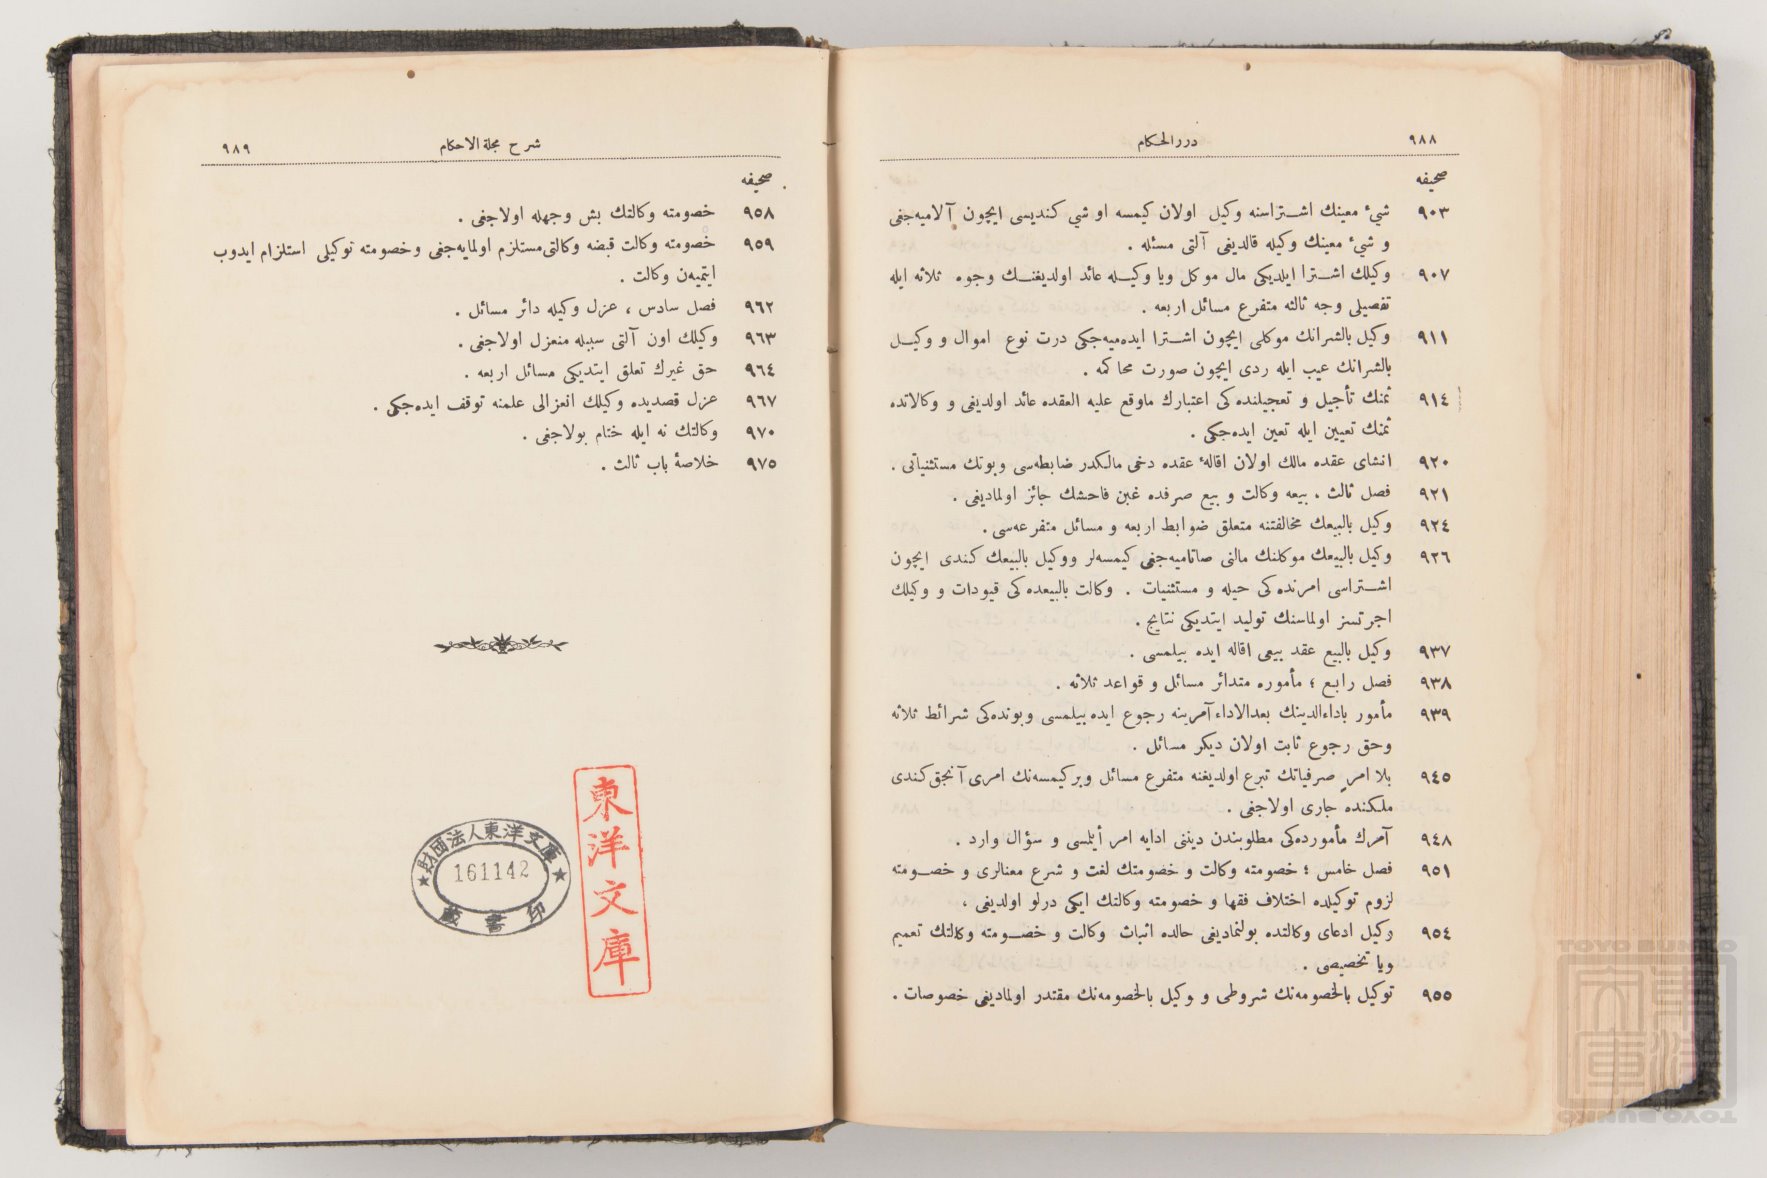 ٩٨٨
دررالحكام
صحيفه
٩٠٣ شیء معينك اشتراسنه وكيل اولان كيمسه او شي كنديسی ايچون آلاميه‌جغی
و شیء معينك وكيله قالديغی آلتی مسئله .
٩٠٧ وكيلك اشترا ايلديكی مال موكل ويا وكيله عائد اولديغنك وجوه ثلاثه ايله
تفصيلی وجه ثالثه متفرع مسائل اربعه .
٩١١ وكيل بالشرانك موكلی ايچون اشترا ايده‌ميه‌جكی درت نوع اموال و وكيل
بالشرانك عيب ايله ردی ايچون صورت محاكمه .
٩١٤ ثمنك تأجيل و تعجيلنده‌كی اعتبارك ماوقع عليه العقده عائد اولديغی و وكالاتده
ثمنك تعيين ايله تعين ايده‌جكی .
٩٢٠ انشای عقده مالك اولان اقالهٔ عقده دخی مالكدر ضابطه‌سی وبونك مستثنياتی .
٩٢١ فصل ثالث ، بيعه وكالت و بيع صرفده غبن فاحشك جائز اولماديغی .
٩٢٤ وكيل بالبيعك مخالفتنه متعلق ضوابط اربعه و مسائل متفرعه‌سی .
٩٢٦ وكيل بالبيعك موكلنك مالنی صاتاميه‌جغی كيمسه‌لر ووكيل بالبيعك كندی ايچون
اشتراسی امرنده‌كی حيله و مستثنيات . وكالت بالبيعده‌كی قيودات و وكيلك
اجرتسز اولماسنك توليد ايتديكی نتايج .
٩٣٧ وكيل بالبيع عقد بيعی اقاله ايده بيلمسی .
٩٣٨ فصل رابع ؛ مأموره متدائر مسائل و قواعد ثلاثه .
٩٣٩ مأمور باداءالدينك بعدالاداء آمرينه رجوع ايده بيلمسی وبونده‌كی شرائط ثلاثه
وحق رجوع ثابت اولان ديكر مسائل .
٩٤٥ بلا امرٍ صرفياتك تبرع اولديغنه متفرع مسائل وبر كيمسه‌نك امری آنجق كندی
ملكنده جاری اولاجغی .
٩٤٨ آمرك مأمورده‌كی مطلوبندن دينی ادايه امر أيلمسی و سؤال وارد .
٩٥١ فصل خامس ؛ خصومته وكالت و خصومتك لغت و شرع معنالری و خصومته
لزوم توكيلده اختلاف فقها و خصومته وكالتك ايكی درلو اولديغی ،
٩٥٤ وكيل ادعای وكالتده بولنماديغی حالده اثبات وكالت و خصومته وكالتك تعميم
ويا تخصيصی .
٩٥٥ توكيل بالخصومه‌نك شروطی و وكيل بالخصومه‌نك مقتدر اولماديغی خصوصات .
شرح مجلة الاحكام
٩٨٩
صحيفه
٩٥٨ خصومته وكالتك بش وجهله اولاجغی .
٩٥٩ خصومته وكالت قبضه وكالتی مستلزم اولمايه‌جغی وخصومته توكيلی استلزام ايدوب
ايتميه‌ن وكالت .
٩٦٢ فصل سادس ، عزل وكيله دائر مسائل .
٩٦٣ وكيلك اون آلتی سببله منعزل اولاجغی .
٩٦٤ حق غيرك تعلق ايتديكی مسائل اربعه .
٩٦٧ عزل قصديده وكيلك انعزالی علمنه توقف ايده‌جكی .
٩٧٠ وكالتك نه ايله ختام بولاجغی .
٩٧٥ خلاصهٔ باب ثالث .
東洋文庫
財団法人東洋文庫
161142
蔵書印
TOYO BUNKO
東洋文庫
TOYO BUNKO